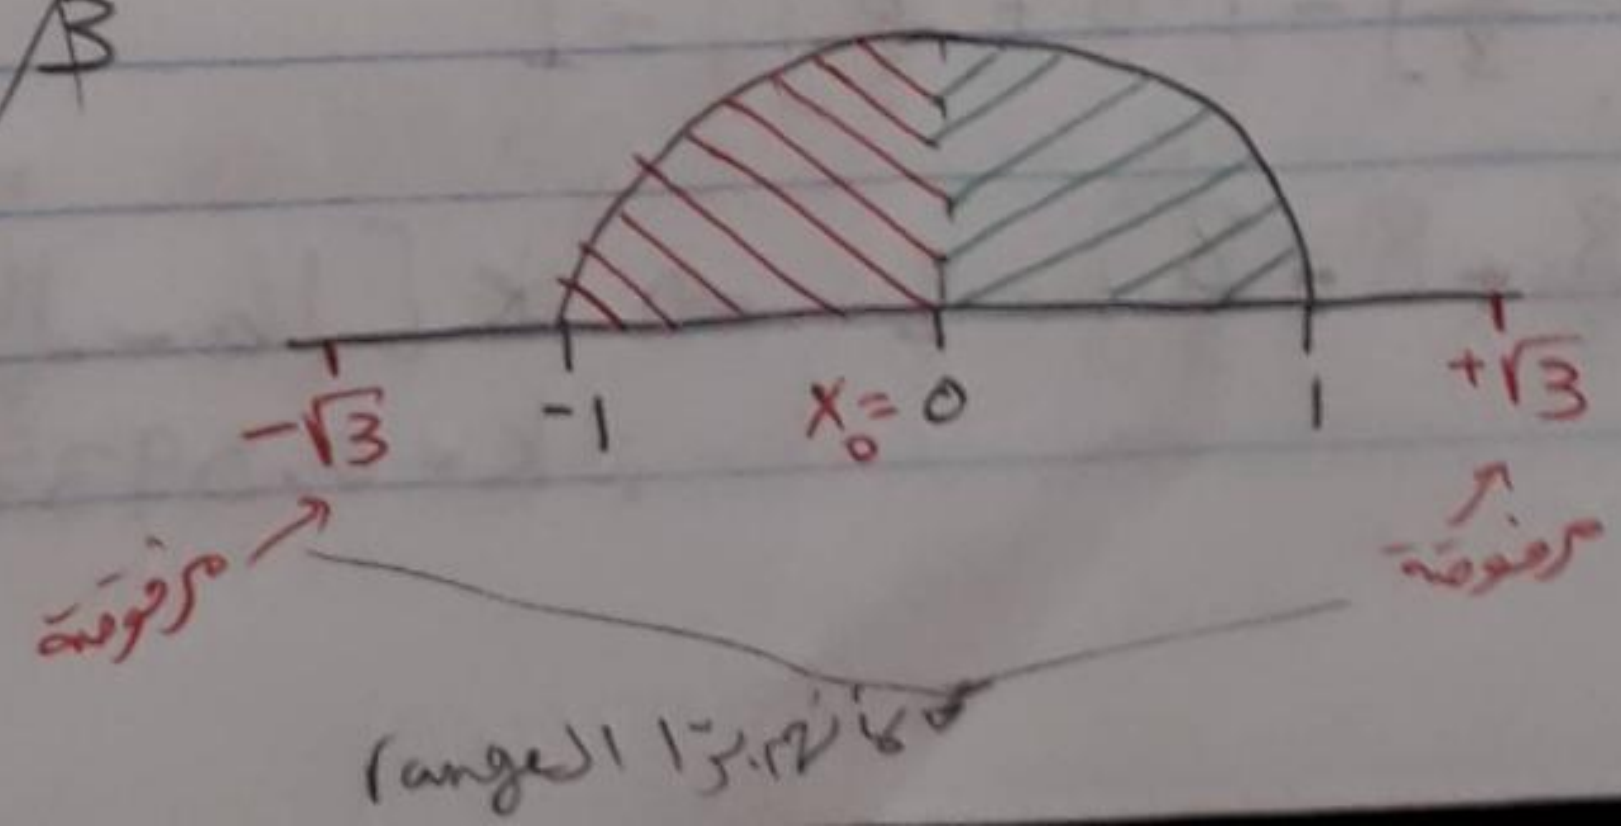 B
-√3 -1 X₀= 0 1 +√3
مرفوضة مرفوضة
برّا الـ range